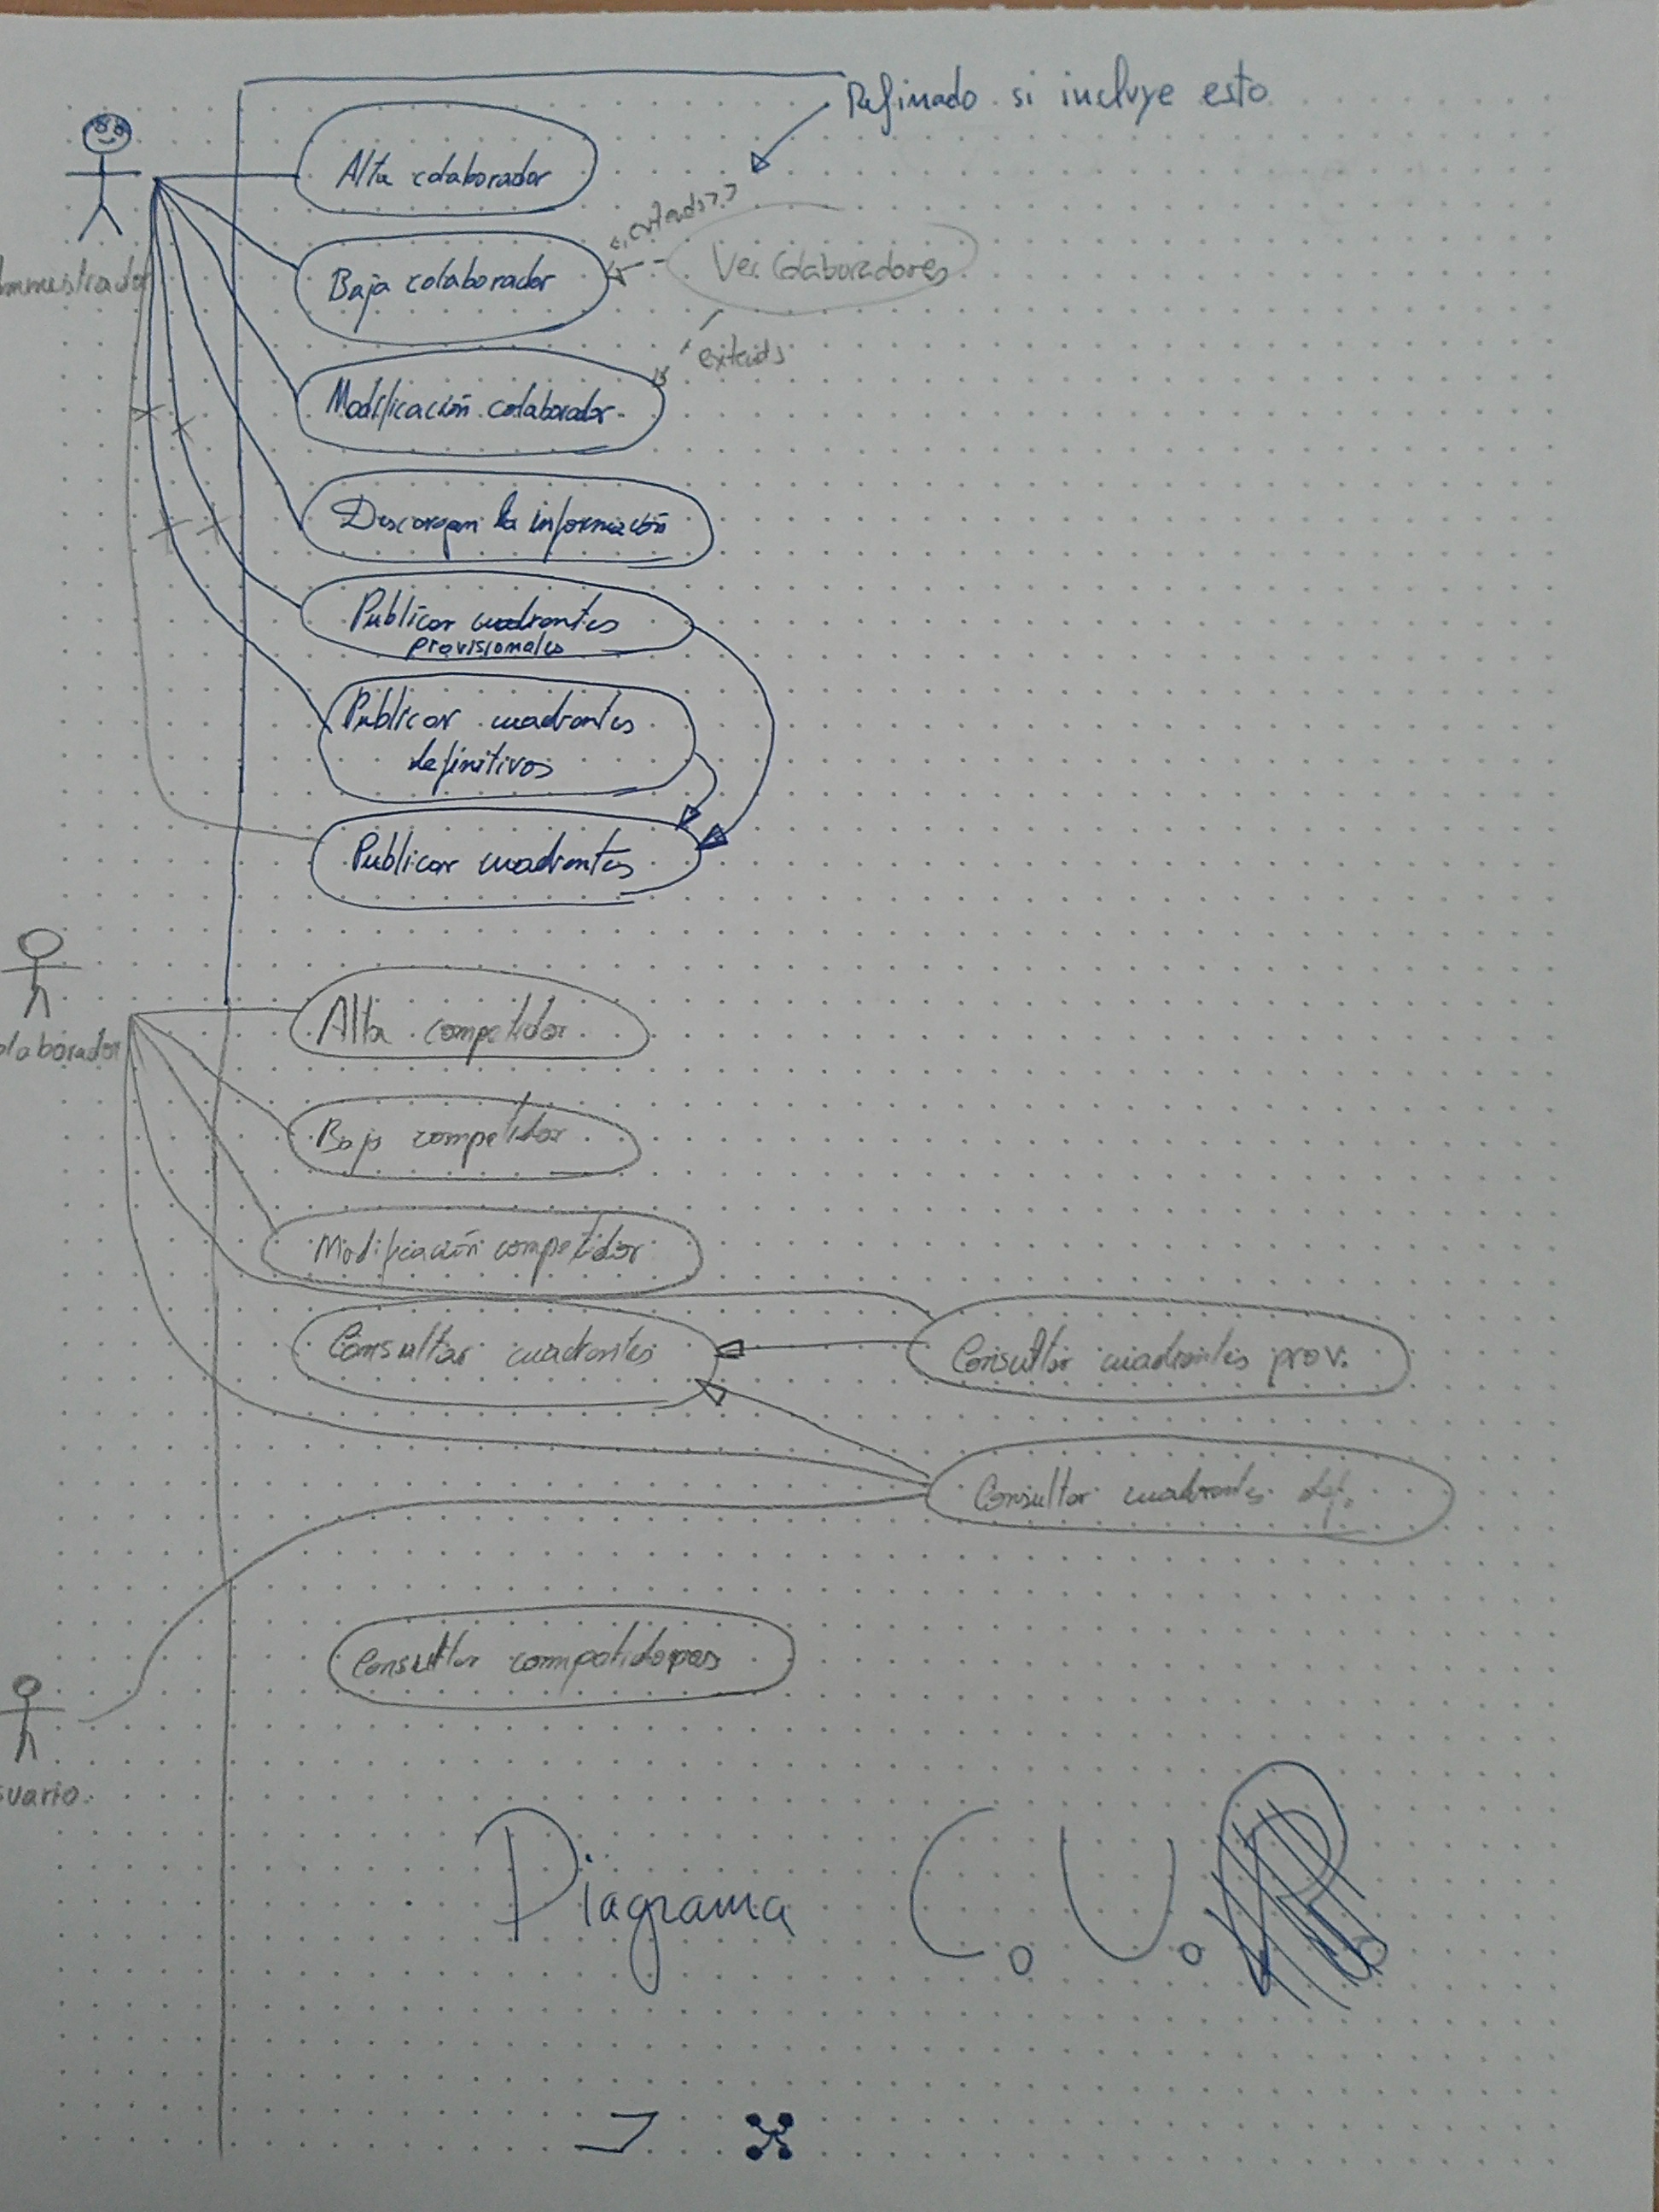 Refinado si incluye esto
Alta colaborador
<<extends>>
Ver Colaboradores
Baja colaborador
extends
Modificación colaborador
Descargan la información
Publicar cuadrantes
provisionales
Publicar cuadrantes
definitivos
Publicar cuadrantes
Alta competidor
olaborador
Baja competidor
Modificación competidor
Consultar cuadrantes
Consultar cuadrantes prov.
Consultar cuadrantes def.
Consultar competidores
suario.
Diagrama C.U.